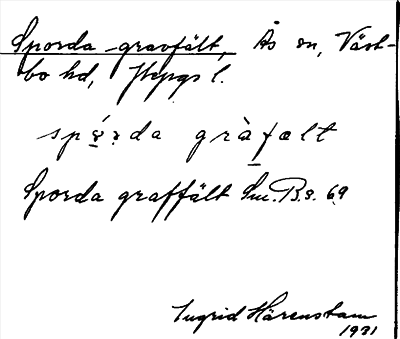 Sporda gravfält, Ås sn, Väst-
bo hd, Jkpgs l.
spó̤r̤da gràf̲ælt
Sporda graffält Sm. B.s. 69
Ingrid Härenstam
1931